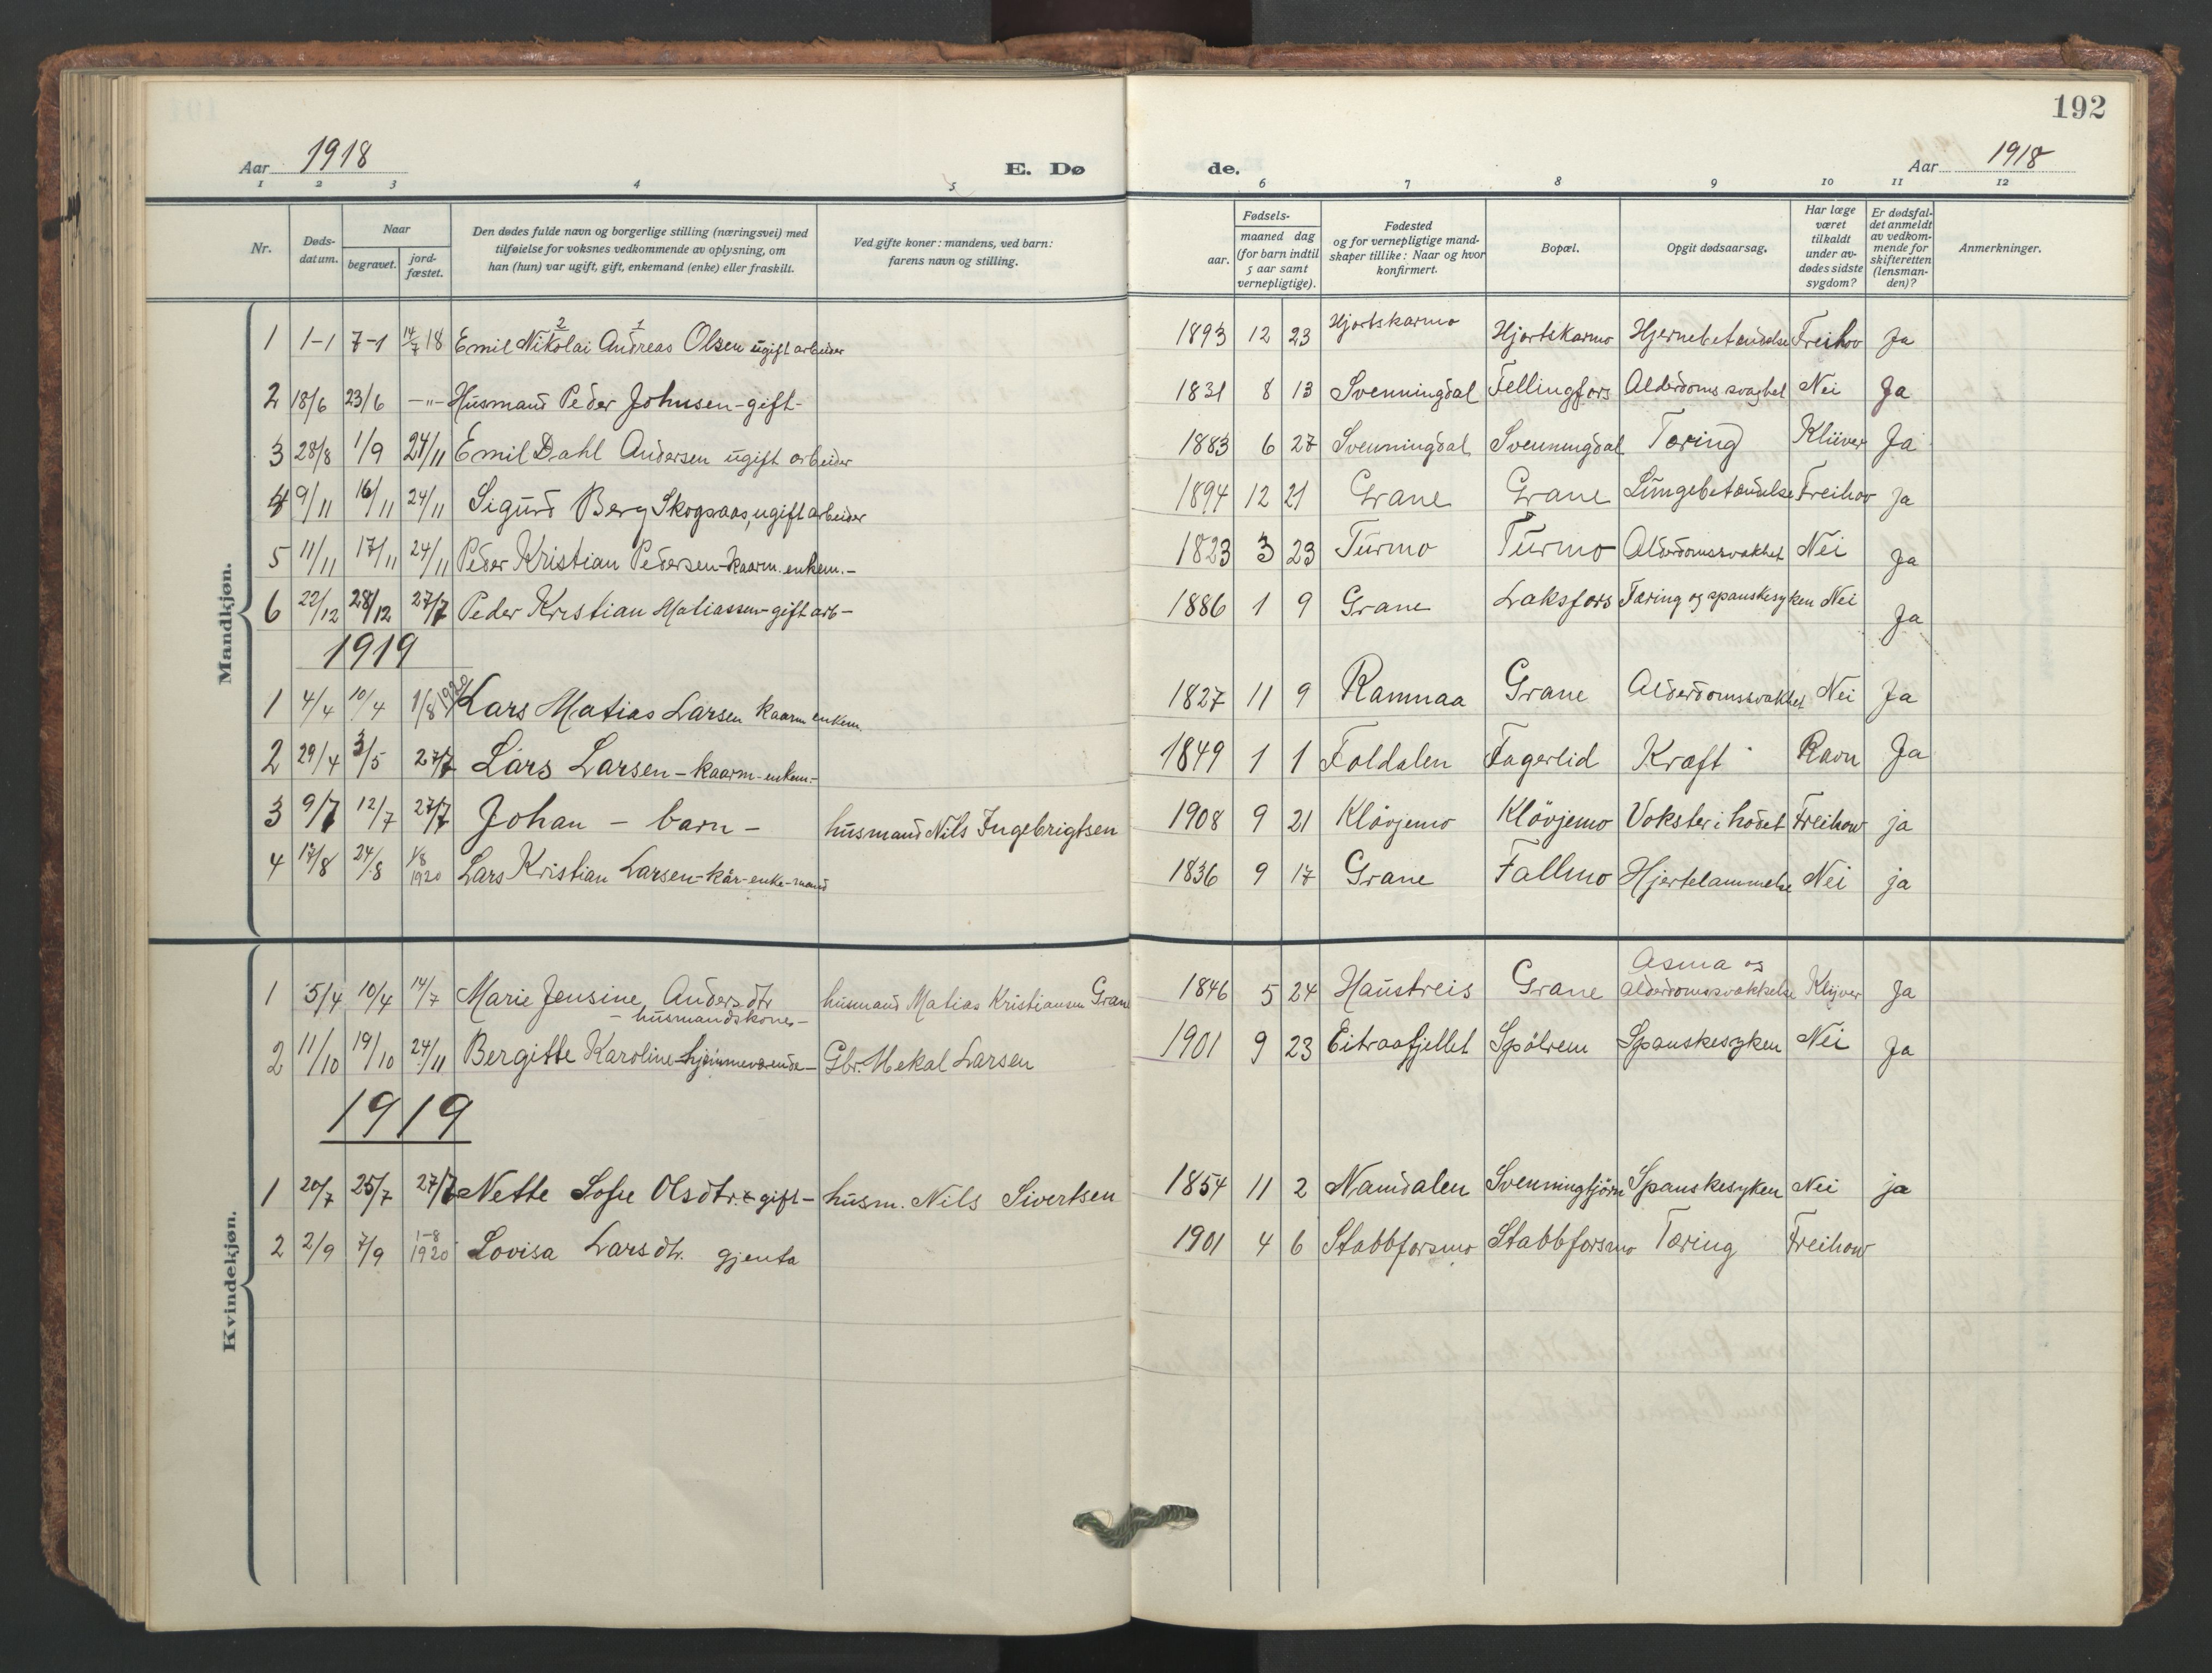 192
Aar 1918 E. Døde. Aar 1918
1 2 3 4 5 6 7 8 9 10 11 12
Nr. Døds-datum. Naar begravet. jord-fæstet. Den dødes fulde navn og borgerlige stilling (næringsvei) med tilføielse for voksnes vedkommende av oplysning, om han (hun) var ugift, gift, enkemand (enke) eller fraskilt. Ved gifte koner: mandens, ved barn: farens navn og stilling. Fødsels- aar. maaned dag (for barn indtil 5 aar samt vernepligtige). Fødested og for vernepligtige mand-skaper tillike: Naar og hvor konfirmert. Bopæl. Opgit dødsaarsag. Har læge været tilkaldt under av-dødes sidste sygdom? Er dødsfal-det anmeldt av vedkom-mende for skifteretten (lensman-den)? Anmerkninger.
Mandkjøn.
1 1-1 7-1 14/7 18 Emil Nikolai 2 Andreas 1 Olsen ugift arbeider 1893 12 23 Hjortskarmo Hjortskarmo Hjernebetændelse Freihow Ja
2 18/6 23/6 -"- Husmand Peder Johnsen-gift- 1831 8 13 Svenningdal Fellingfors Alderdoms svaghet Nei Ja
3 28/8 1/9 24/11 Emil Dahl Andersen ugift arbeider 1883 6 27 Svenningdal Svenningdal Tæring Klüver Ja
4 9/11 16/11 24/11 Sigurd Berg Skogsaas, ugift arbeider 1894 12 21 Grane Grane Lungebetændelse Freihow Ja
5 11/11 17/11 24/11 Peder Kristian Pedersen-kaarm. enkem.- 1823 3 23 Turmo Turmo Alderdomssvakhet Nei Ja
6 22/12 28/12 27/7 Peder Kristian Matiassen-gift arb- 1886 1 9 Grane Laksfors Tæring og spanskesyken Nei Ja
1919
1 4/4 10/4 1/8 1920 Lars Matias Larsen kaarm enkem. 1827 11 9 Ramnaa Grane Alderdomssvakhet Nei Ja
2 29/4 3/5 27/7 Lars Larsen-kaarm-enkem.- 1849 1 1 Foldalen Fagerlid Kræft Ravn Ja
3 9/7 12/7 27/7 Johan - barn - husmand Nils Ingebrigtsen 1908 9 21 Klövjemo Klövjemo Vokster i hodet Freihow ja
4 17/8 24/8 1/8 1920 Lars Kristian Larsen-kår-enke-mand 1836 9 17 Grane Fallmo Hjertelammelse Nei ja
Kvindekjøn.
1 5/4 10/4 14/7 Marie Jensine Andersdtr -husmandskone- husmand Matias Kristiansen Grane 1846 5 24 Haustreis Grane Asma og alderdomssvakkelse Klyver Ja
2 11/10 19/10 24/11 Bergitte Karoline-hjemmeværende- Gbr. Mekal Larsen 1901 9 23 Eitraafjellet Spölrem Spanskesyken Nei Ja
1919
1 20/7 25/7 27/7 Nette Sofie Olsdtr. gift- husm. Nils Sivertsen 1854 11 2 Namdalen Svenningtjörn Spanskesyken Nei ja
2 2/9 7/9 1-8 1920 Lovisa Larsdtr. gjenta 1901 4 6 Stabbforsmo Stabbforsmo Tæring Freihow